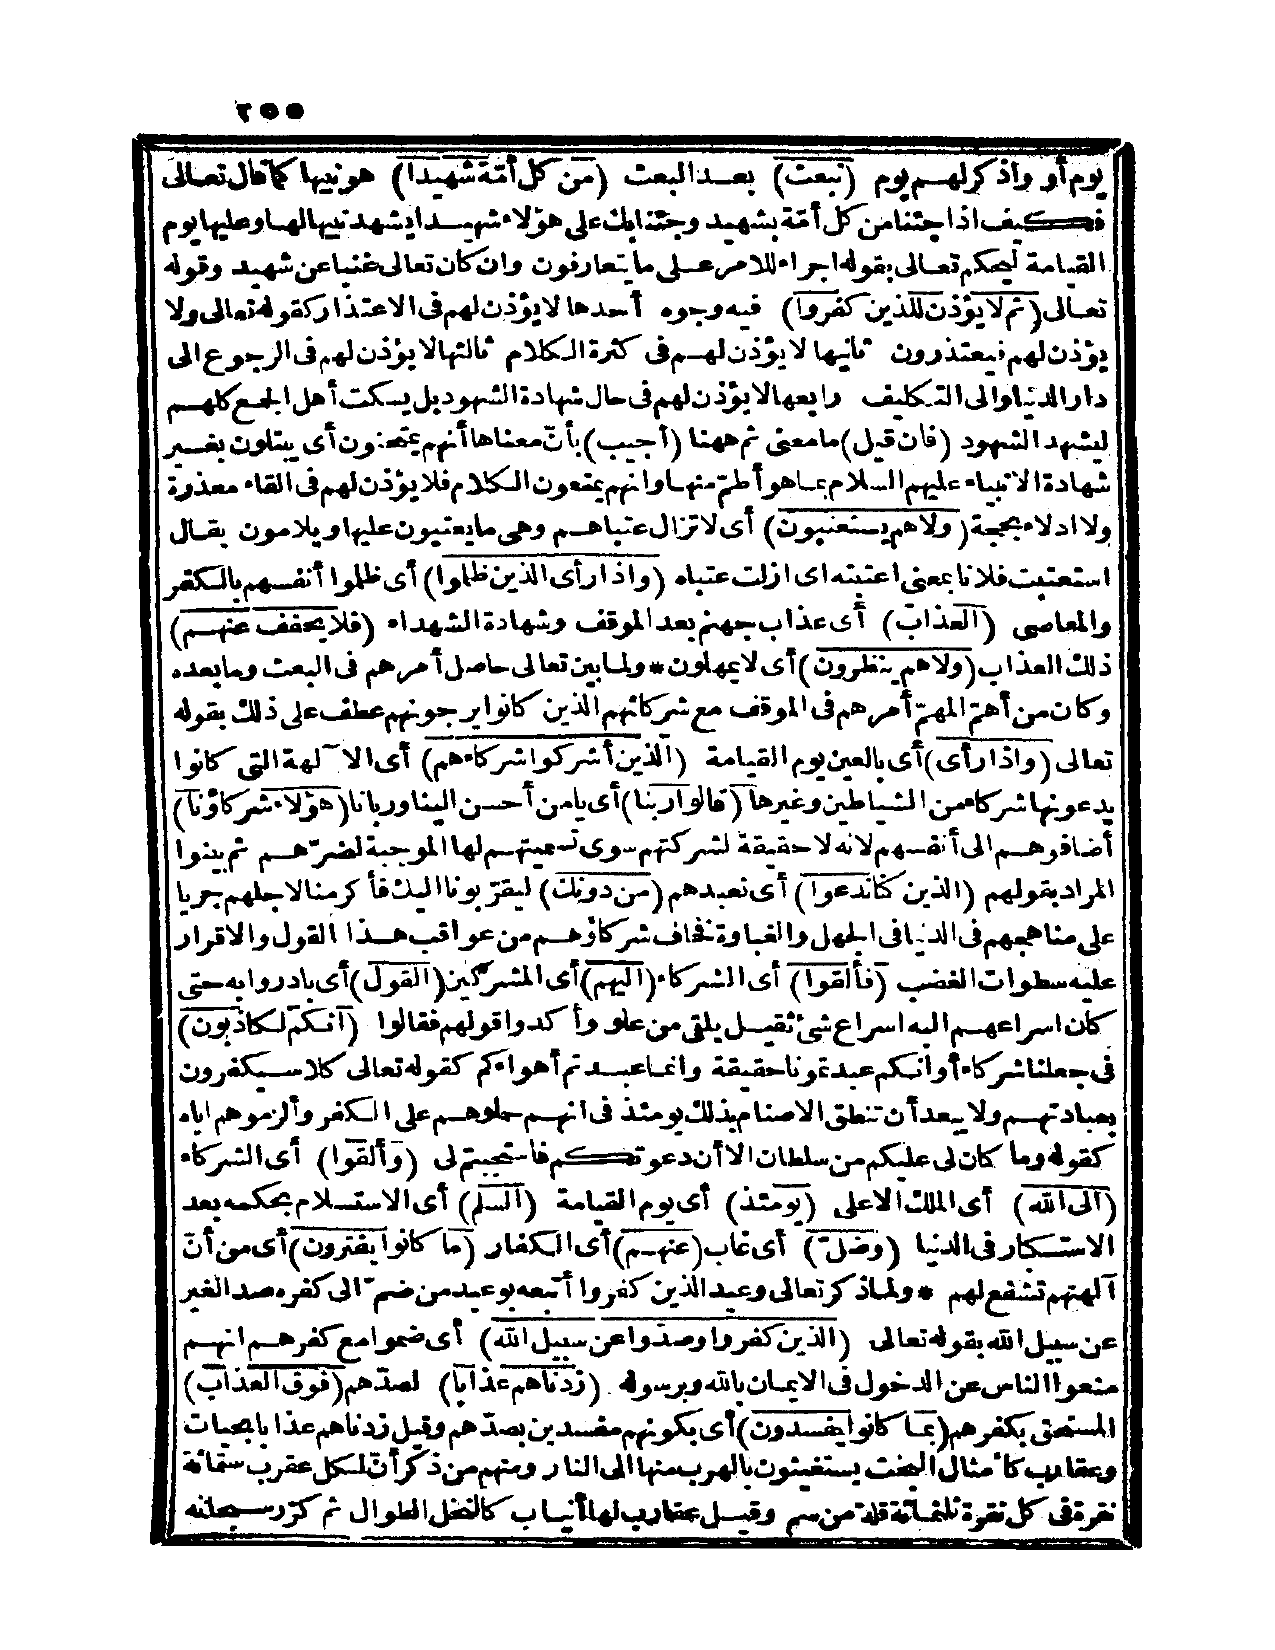 ٢٥٥
يوم أو واذكر لهم يوم (نبعث) بعد البعث (من كل أمّة شهيدا) هو نبيها كما قال تعالى
فكيف اذا جئنا من كل أمّة بشهيد وجئنا بك على هؤلاء شهيدا يشهد نبيها لها وعليها يوم
القيامة ليحكم تعالى بقوله اجراء للامر على ما يتعارفون وان كان تعالى غنيا عن شهيد وقوله
تعالى (ثم لا يؤذن للذين كفروا) فيه وجوه أحدها لا يؤذن لهم فى الاعتذار كقوله تعالى ولا
يؤذن لهم فيعتذرون ثانيها لا يؤذن لهم فى كثرة الكلام ثالثها لا يؤذن لهم فى الرجوع الى
دار الدنيا والى التكليف رابعها لا يؤذن لهم فى حال شهادة الشهود بل يسكت أهل الجمع كلهم
ليشهد الشهود (فان قيل) ما معنى ثم ههنا (أجيب) بأنّ معناها أنهم يمتحنون أى يبتلون بغير
شهادة الانبياء عليهم السلام بما هو أطمّ منها وانهم يمنعون الكلام فلا يؤذن لهم فى القاء معذرة
ولا ادلاء بحجة (ولا هم يستعتبون) أى لا تزال عتباهم وهى ما يعتبون عليها ويلامون يقال
استعتبت فلانا بمعنى اعتبته اى ازلت عتباه (واذا رأى الذين ظلموا) أى ظلموا أنفسهم بالكفر
والمعاصى (العذاب) أى عذاب جهنم بعد الموقف وشهادة الشهداء (فلا يخفف عنهم)
ذلك العذاب (ولا هم ينظرون) أى لا يمهلون * ولما بين تعالى حاصل أمرهم فى البعث وما بعده
وكان من أهمّ المهمّ أمرهم فى الموقف مع شركائهم الذين كانوا يرجونهم عطف على ذلك بقوله
تعالى (واذا رأى) أى بالعين يوم القيامة (الذين أشركوا شركاءهم) أى الآلهة التى كانوا
يدعونها شركاء من الشياطين وغيرها (قالوا ربنا) أى يا من أحسن الينا وربانا (هؤلاء شركاؤنا)
أضافوهم الى أنفسهم لانه لا حقيقة لشركتهم سوى تسميتهم لها الموجبة لضرّهم ثم بينوا
المراد بقولهم (الذين كنا ندعوا) أى نعبدهم (من دونك) ليقرّبونا اليك فأكرمنا لاجلهم جريا
على مناهجهم فى الدنيا فى الجهل والغباوة فخاف شركاؤهم من عواقب هذا القول والاقرار
عليه سطوات الغضب (فألقوا) أى الشركاء (اليهم) أى المشركين (القول) أى بادروا به حتى
كان اسراعهم اليه اسراع شئ ثقيل يلقى من علو وأكدوا قولهم فقالوا (انكم لكاذبون)
فى جعلنا شركاء أو انكم عبدتمونا حقيقة وانما عبدتم أهواءكم كقوله تعالى كلا سيكفرون
بعبادتهم ولا يبعد أن تنطق الاصنام بذلك يومئذ فى انهم حملوهم على الكفر وألزموهم اياه
كقوله وما كان لى عليكم من سلطان الا أن دعوتكم فاستجبتم لى (وألقوا) أى الشركاء
(الى الله) أى الملك الاعلى (يومئذ) أى يوم القيامة (السلم) أى الاستسلام بحكمه بعد
الاستكبار فى الدنيا (وضلّ) أى غاب (عنهم) أى الكفار (ما كانوا يفترون) أى من أنّ
آلهتهم تشفع لهم * ولما ذكر تعالى وعيد الذين كفروا أتبعه بوعيد من ضمّ الى كفره صد الغير
عن سبيل الله بقوله تعالى (الذين كفروا وصدّوا عن سبيل الله) أى ضموا مع كفرهم انهم
منعوا الناس عن الدخول فى الايمان بالله وبرسوله (زدناهم عذابا) لصدّهم (فوق العذاب)
المستحق بكفرهم (بما كانوا يفسدون) أى بكونهم مفسدين بصدّهم وقيل زدناهم عذابا بحيات
وعقارب كأمثال البخت يستغيثون بالهرب منها الى النار ومنهم من ذكر أنّ لكل عقرب ستمائة
نقرة فى كل نقرة ثلثمائة قلة من سم وقيل عقارب لها أنياب كالنخل الطوال ثم كرّر سبحانه